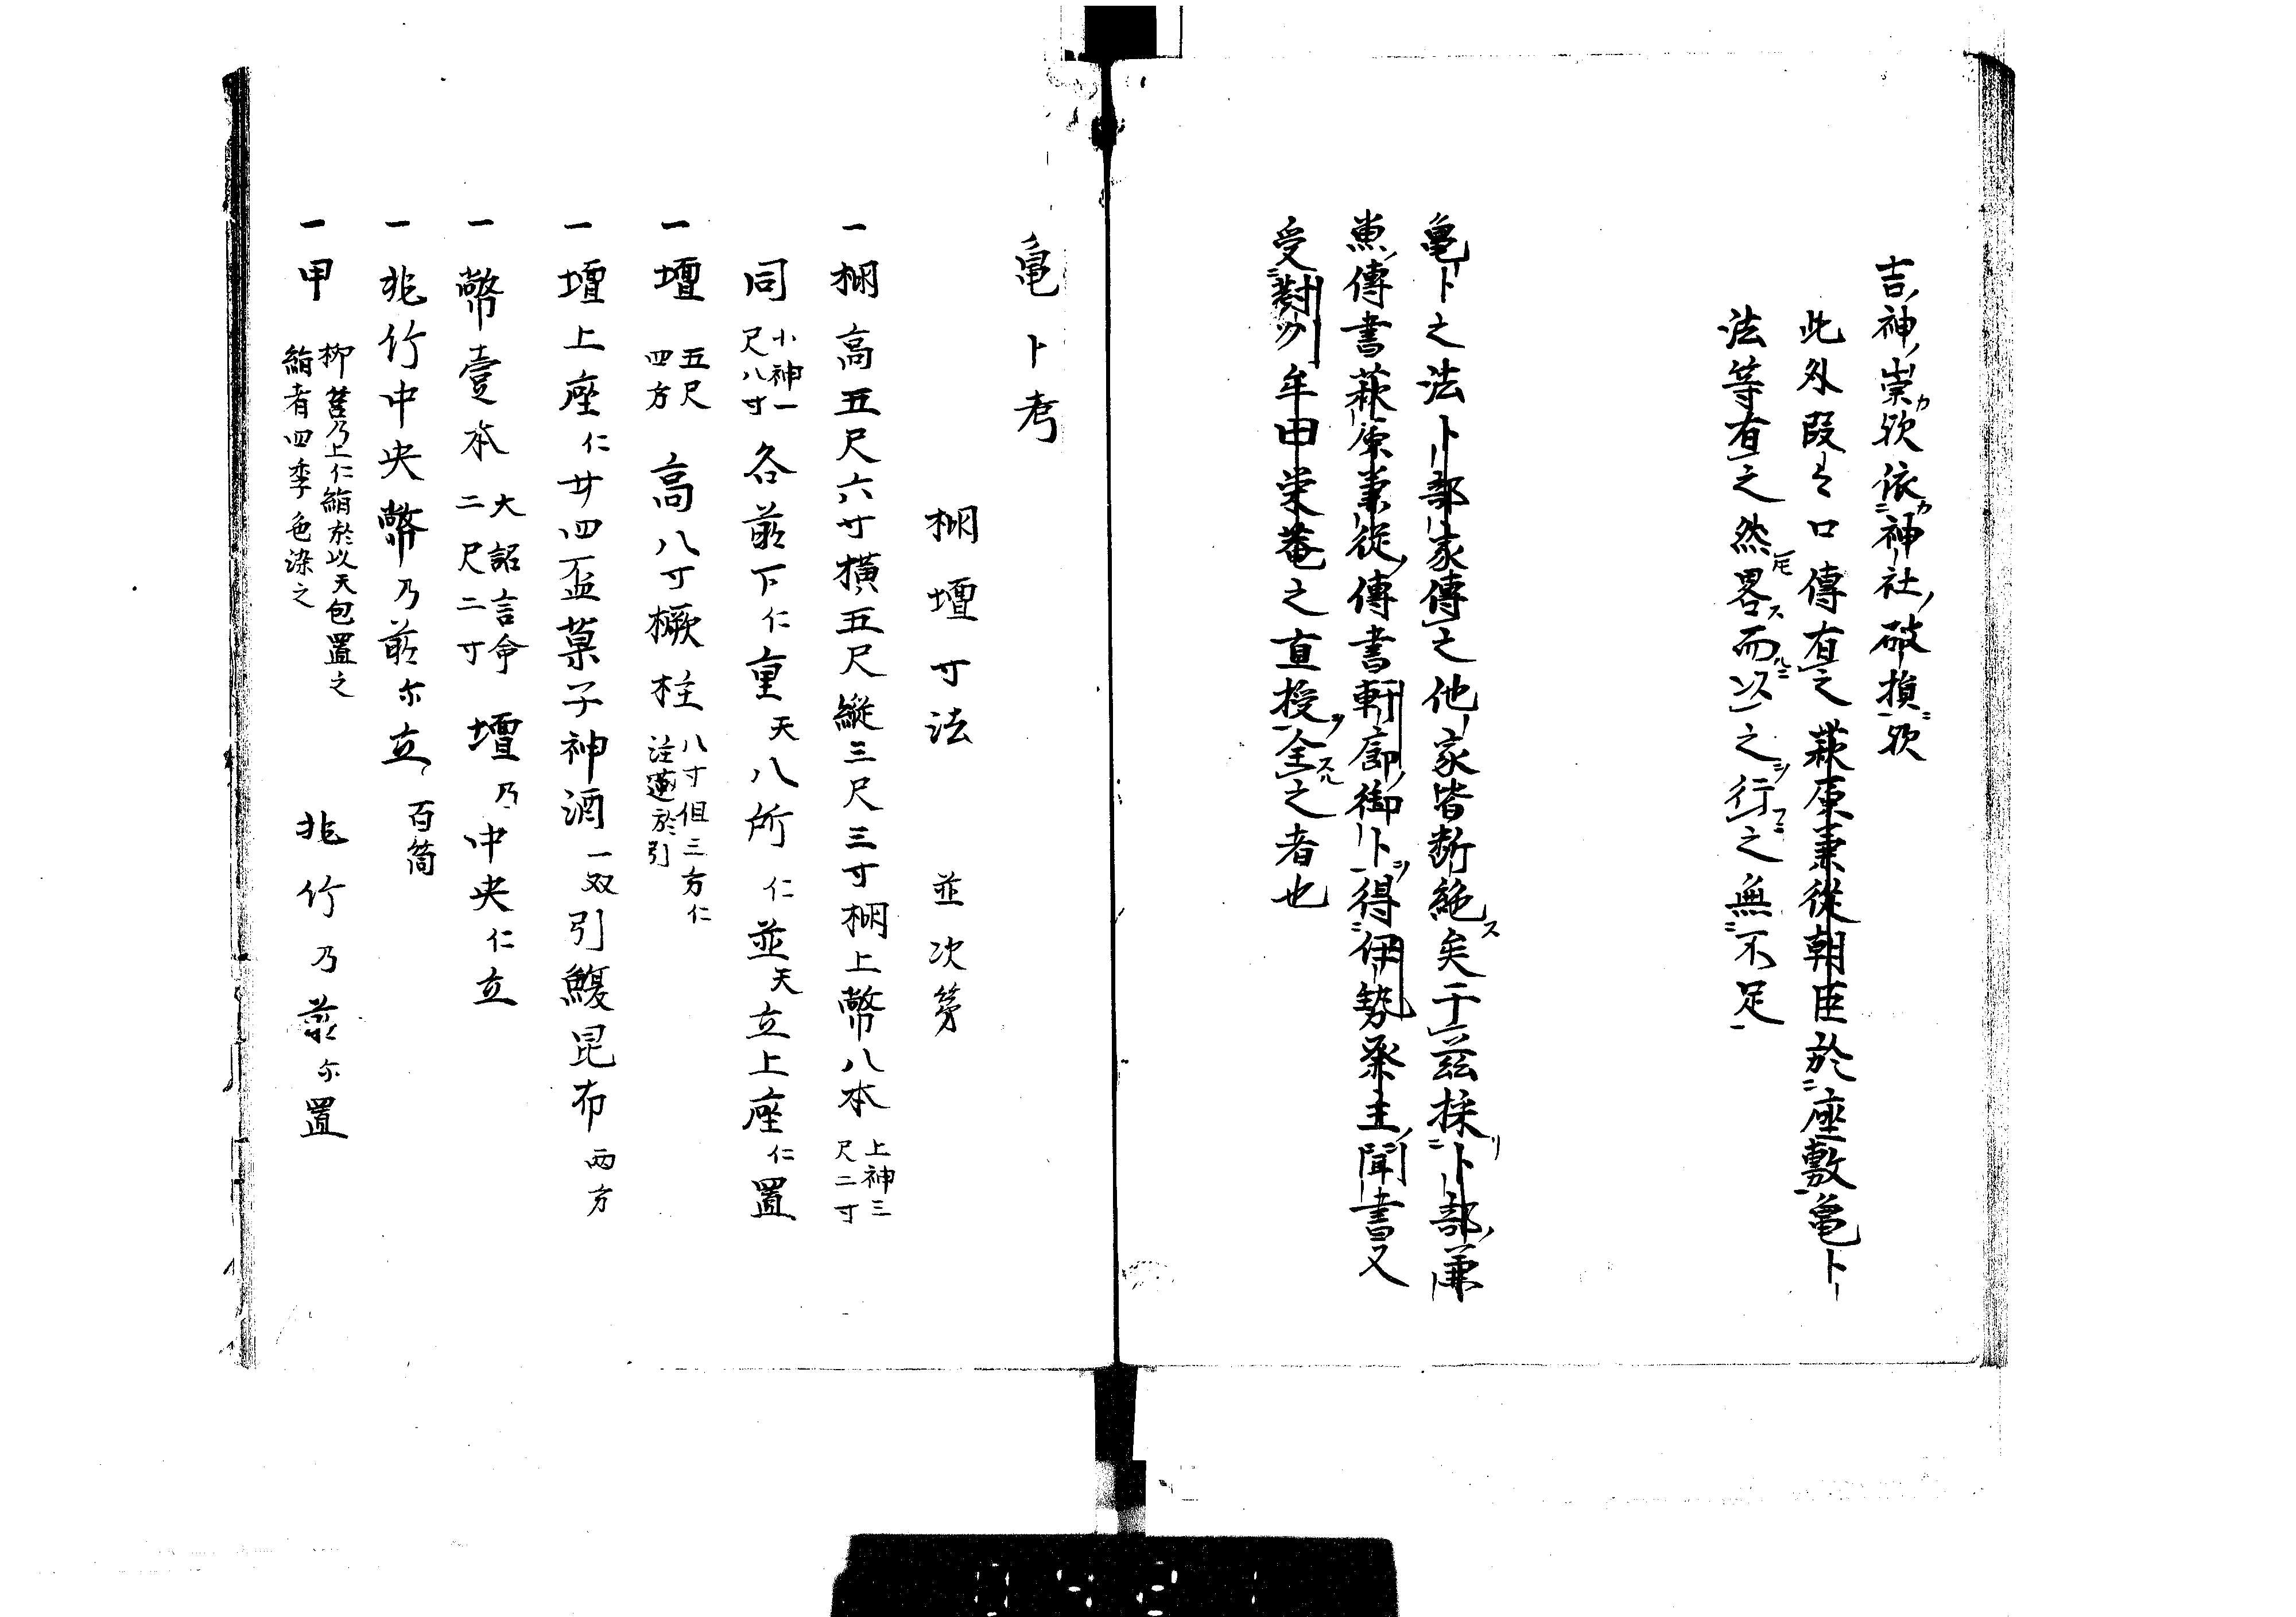 吉神ノ崇欤依神社ノ破損欤
此外段々口傳有之萩原兼從朝臣於座敷亀卜
法等有之然畧而以之行之無不足
亀卜之法卜部家傳之他家皆断絶矣于茲採卜部ノ兼
魚傳書萩原兼從ノ傳書軒廊御卜得伊勢祭主ノ聞書又
受對州牟田栄菴之直授全之者也
亀卜考
棚壇寸法 並次第
一棚高五尺六寸横五尺縦三尺三寸棚上幣八本 上神三尺二寸
同 小神一尺八寸 各前下仁重天八所仁並天立上座仁置
一壇 五尺四方 高八寸橛柱 八寸但三方仁注連於引
一壇上座仁廿四盃菓子神酒一双引鰒昆布 両方
一幣壹本 大詔言命二尺二寸 壇乃中央仁立
一兆竹中央幣乃前尓立、百箇
一甲 柳筥乃上仁絹於以天包置之絹者四季色染之 兆竹乃前尓置